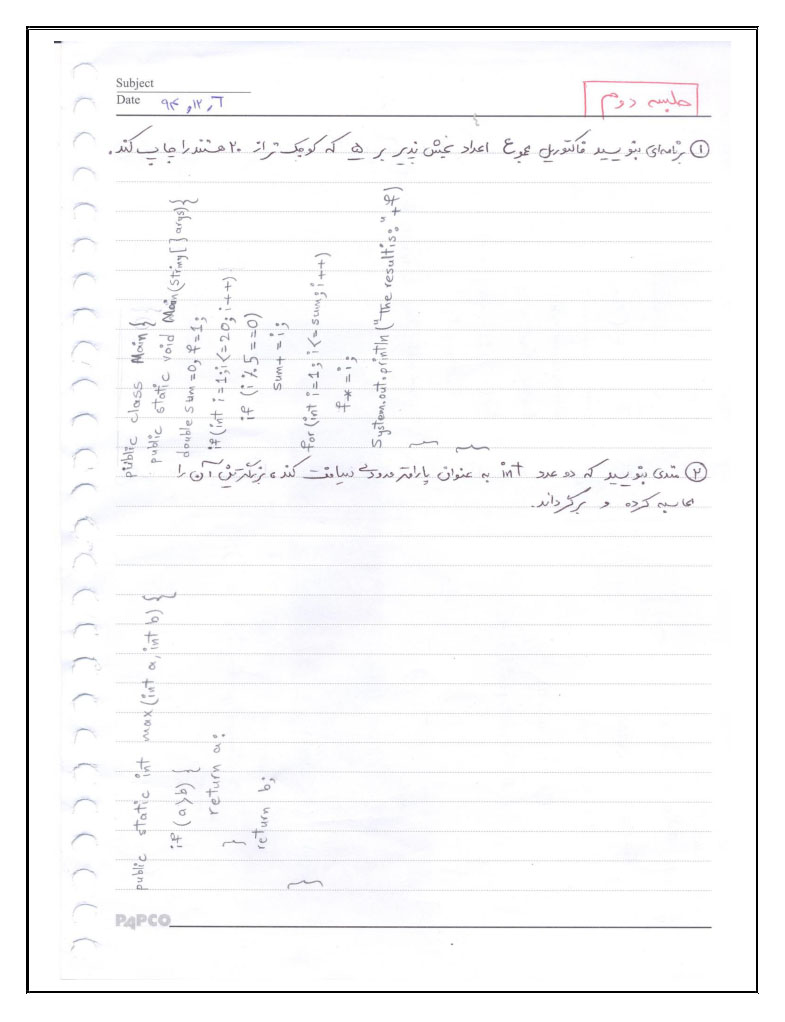 Subject
Date ۹۴, ۱۲, ۲
جلسه دوم
① برنامه‌ای بنویسید فاکتوریل مجموع اعداد بخش پذیر بر ۵ که کوچک تر از ۲۰ هستند را چاپ کند.
public class Main {
public static void Main(String[] args){
double sum=0, f=1;
if(int i=1; i<=20; i++)
if (i%5==0)
sum+=i;
for(int i=1; i<=sum; i++)
f*=i;
System.out.println("The resultis:"+f)
}
}
② متدی بنویسید که دو عدد int به عنوان پارامتر ورودی دریافت کند، بزرگترین آن را
محاسبه کرده و برگرداند.
public static int max(int a, int b) {
if (a>b) {
return a;
}
return b;
}
PAPCO